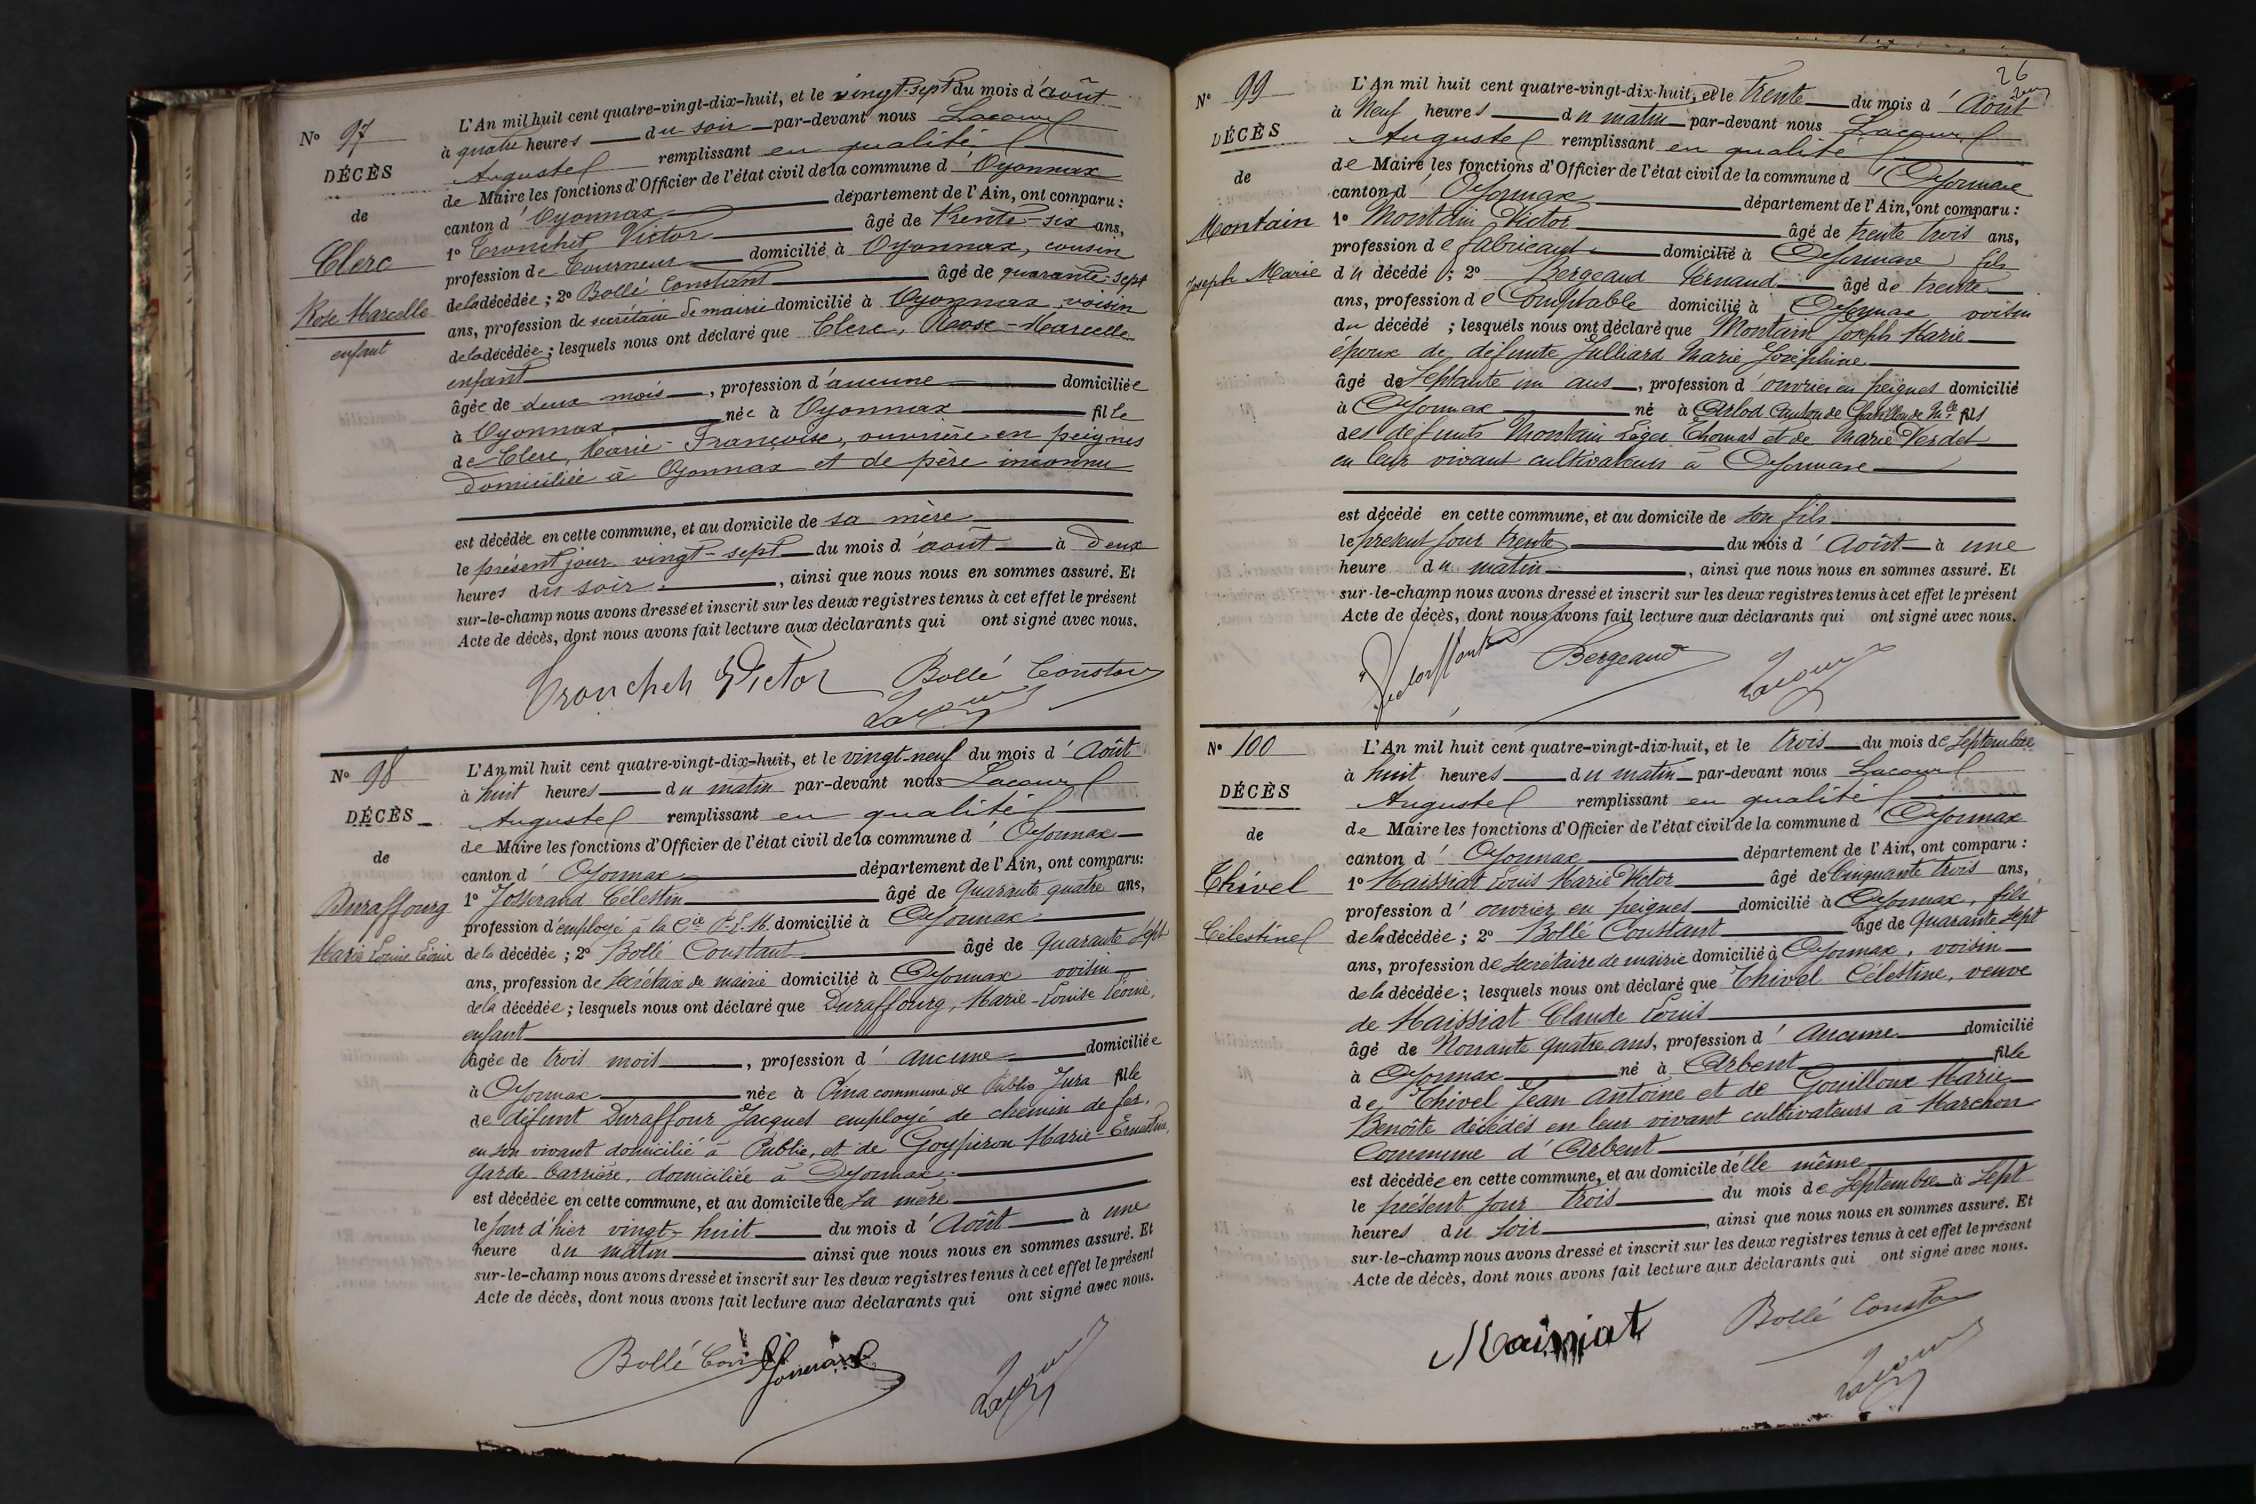 N° 97
DÉCÈS
de
Clerc
Rose Marcelle
enfant
L'An mil huit cent quatre-vingt-dix-huit, et le vingt-sept du mois d'août
à quatre heures du soir par-devant nous Lacour
Auguste remplissant en qualité
de Maire les fonctions d'Officier de l'état civil de la commune d'Oyonnax
canton d'Oyonnax département de l'Ain, ont comparu :
1° Tronchet Victor âgé de trente-six ans,
profession de Tourneur domicilié à Oyonnax, cousin
de la décédée ; 2° Bollé Constant âgé de quarante-sept
ans, profession de secrétaire de mairie domicilié à Oyonnax, voisin
de la décédée ; lesquels nous ont déclaré que Clerc, Rose-Marcelle
enfant
âgée de deux mois, profession d'aucune domiciliée
à Oyonnax née à Oyonnax fille
de Clerc, Marie-Françoise, ouvrière en peignes
domiciliée à Oyonnax et de père inconnu
est décédée en cette commune, et au domicile de sa mère
le présent jour vingt-sept du mois d'août à deux
heures du soir, ainsi que nous nous en sommes assuré. Et
sur-le-champ nous avons dressé et inscrit sur les deux registres tenus à cet effet le présent
Acte de décès, dont nous avons fait lecture aux déclarants qui ont signé avec nous.
Tronchet Victor Bollé Constant
Lacour
N° 98
DÉCÈS
de
Duraffourg
Marie Louise Léonie
L'An mil huit cent quatre-vingt-dix-huit, et le vingt-neuf du mois d'Août
à huit heures du matin par-devant nous Lacour
Auguste remplissant en qualité
de Maire les fonctions d'Officier de l'état civil de la commune d'Oyonnax
canton d'Oyonnax département de l'Ain, ont comparu:
1° Josserand Célestin âgé de Quarante quatre ans,
profession d'employé à la Cie P.L.M. domicilié à Oyonnax
de la décédée ; 2° Bollé Constant âgé de Quarante sept
ans, profession de secrétaire de mairie domicilié à Oyonnax voisin
de la décédée ; lesquels nous ont déclaré que Duraffourg, Marie-Louise Léonie,
enfant
âgée de trois mois, profession d'aucune domiciliée
à Oyonnax née à commune de Publy Jura fille
de défunt Duraffour Jacques employé de chemin de fer,
en son vivant domicilié à Publy, et de Goypiron Marie-Ernestine,
garde barrière, domiciliée à Oyonnax,
est décédée en cette commune, et au domicile de sa mère
le jour d'hier vingt-huit du mois d'Août à une
heure du matin ainsi que nous nous en sommes assuré. Et
sur-le-champ nous avons dressé et inscrit sur les deux registres tenus à cet effet le présent
Acte de décès, dont nous avons fait lecture aux déclarants qui ont signé avec nous.
Bollé Const Josserand Lacour
26
N° 99
DÉCÈS
de
Montain
Joseph Marie
L'An mil huit cent quatre-vingt-dix-huit, et le trente du mois d'Août
à Neuf heures du matin par-devant nous Lacour
Auguste remplissant en qualité
de Maire les fonctions d'Officier de l'état civil de la commune d'Oyonnax
canton d'Oyonnax département de l'Ain, ont comparu :
1° Montain Victor âgé de trente trois ans,
profession de fabricant domicilié à Oyonnax, fils
du décédé ; 2° Bergeaud Fernand âgé de trente
ans, profession de Comptable domicilié à Oyonnax voisin
du décédé ; lesquels nous ont déclaré que Montain Joseph Marie
époux de défunte Julliard Marie Joséphine
âgé de Septante un ans, profession d'ouvrier en peignes domicilié
à Oyonnax né à Arlod Canton de Chatillon de Mlle fils
des défunts Montain Léger Thomas et de Marie Verdet
en leur vivant cultivateurs à Oyonnax
est décédé en cette commune, et au domicile de son fils
le présent jour trente du mois d'Août à une
heure du matin, ainsi que nous nous en sommes assuré. Et
sur-le-champ nous avons dressé et inscrit sur les deux registres tenus à cet effet le présent
Acte de décès, dont nous avons fait lecture aux déclarants qui ont signé avec nous.
Victor Montain Bergeaud Lacour
N° 100
DÉCÈS
de
Thivel
Célestine
L'An mil huit cent quatre-vingt-dix-huit, et le trois du mois de Septembre
à huit heures du matin par-devant nous Lacour
Auguste remplissant en qualité
de Maire les fonctions d'Officier de l'état civil de la commune d'Oyonnax
canton d'Oyonnax département de l'Ain, ont comparu :
1° Maissiat Louis Marie Victor âgé de Cinquante trois ans,
profession d'ouvrier en peignes domicilié à Oyonnax, fils
de la décédée ; 2° Bollé Constant âgé de Quarante sept
ans, profession de secrétaire de mairie domicilié à Oyonnax, voisin
de la décédée ; lesquels nous ont déclaré que Thivel Célestine, veuve
de Maissiat Claude Louis
âgé de Nonante quatre ans, profession d'aucune domicilié
à Oyonnax né à Arbent fille
de Thivel Jean Antoine et de Gouilloux Marie
Benoîte décédés en leur vivant cultivateurs à Marchon
Commune d'Arbent
est décédée en cette commune, et au domicile d'elle même
le présent jour trois du mois de Septembre à sept
heures du soir, ainsi que nous nous en sommes assuré. Et
sur-le-champ nous avons dressé et inscrit sur les deux registres tenus à cet effet le présent
Acte de décès, dont nous avons fait lecture aux déclarants qui ont signé avec nous.
Maissiat Bollé Constant
Lacour